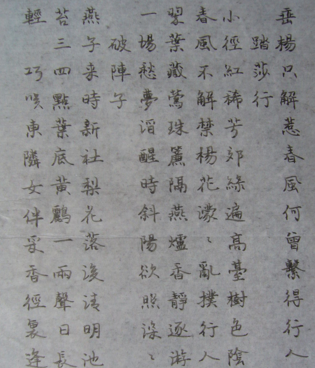 垂楊只解惹春風何曾繫得行人
踏莎行
小徑紅稀芳郊綠遍高臺樹色陰
春風不解禁楊花濛〻亂撲行人
翠葉藏鶯珠簾隔燕爐香靜逐游
一場愁夢酒醒時斜陽欲照深〻
破陣子
燕子来時新社梨花落後清明池
苔三四點葉底黃鸝一兩聲日長
輕巧笑東隣女伴采香徑裏逢